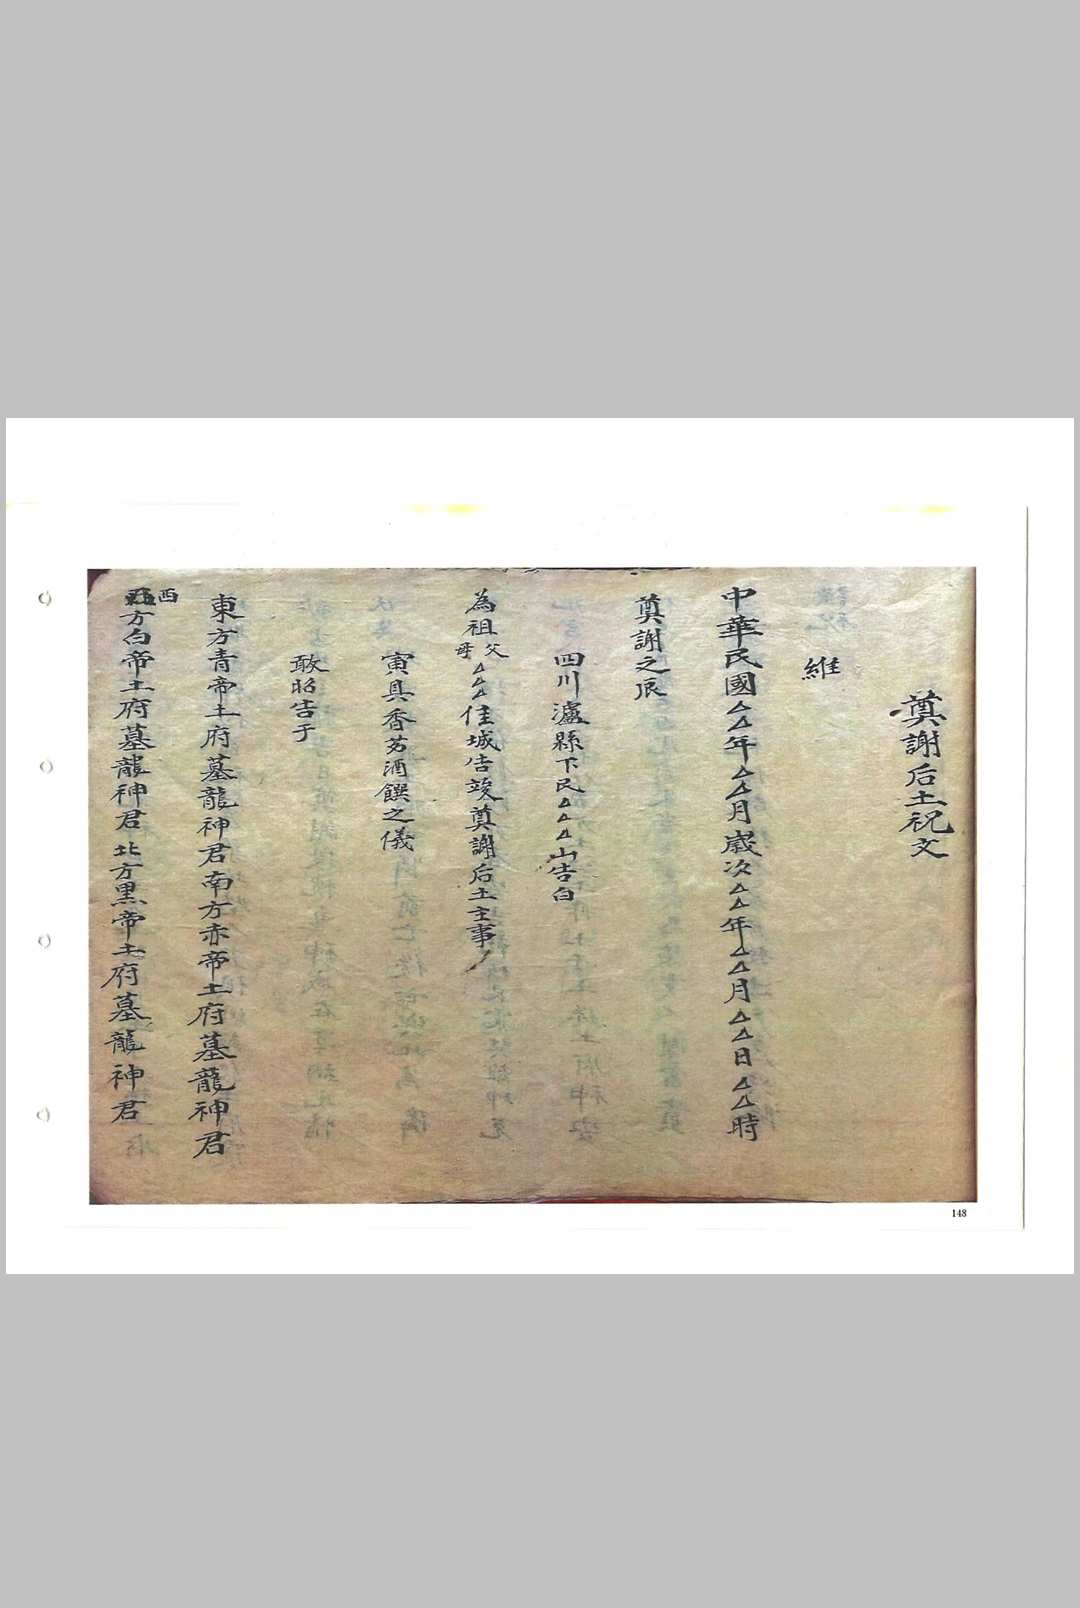 奠謝后土祝文
維
中華民國△△年△△月歲次△△年△△月△△日△△時
奠謝之辰
四川瀘縣下民△△△山告白
為祖父母△△△佳城告竣奠謝后土主事
寅具香芬酒饌之儀
敢昭告于
東方青帝土府墓龍神君南方赤帝土府墓龍神君
西方白帝土府墓龍神君北方黑帝土府墓龍神君
148